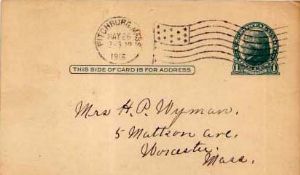 FITCHBURG, MASS.
MAY 26
1916
THIS SIDE OF CARD IS FOR ADDRESS
Mrs H. P. Wyman.
5 Mattson Ave.
Worcester
Mass.